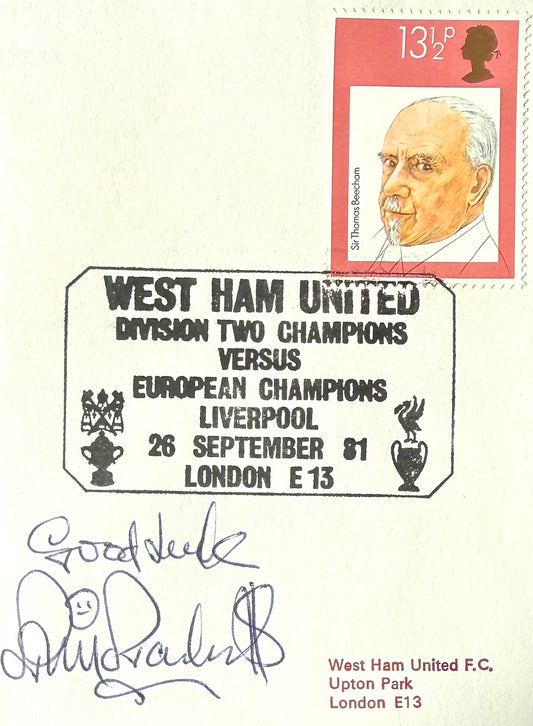 13½P
Sir Thomas Beecham
WEST HAM UNITED
DIVISION TWO CHAMPIONS
VERSUS
EUROPEAN CHAMPIONS
LIVERPOOL
26 SEPTEMBER 81
LONDON E 13
Good Luck
West Ham United F.C.
Upton Park
London E13